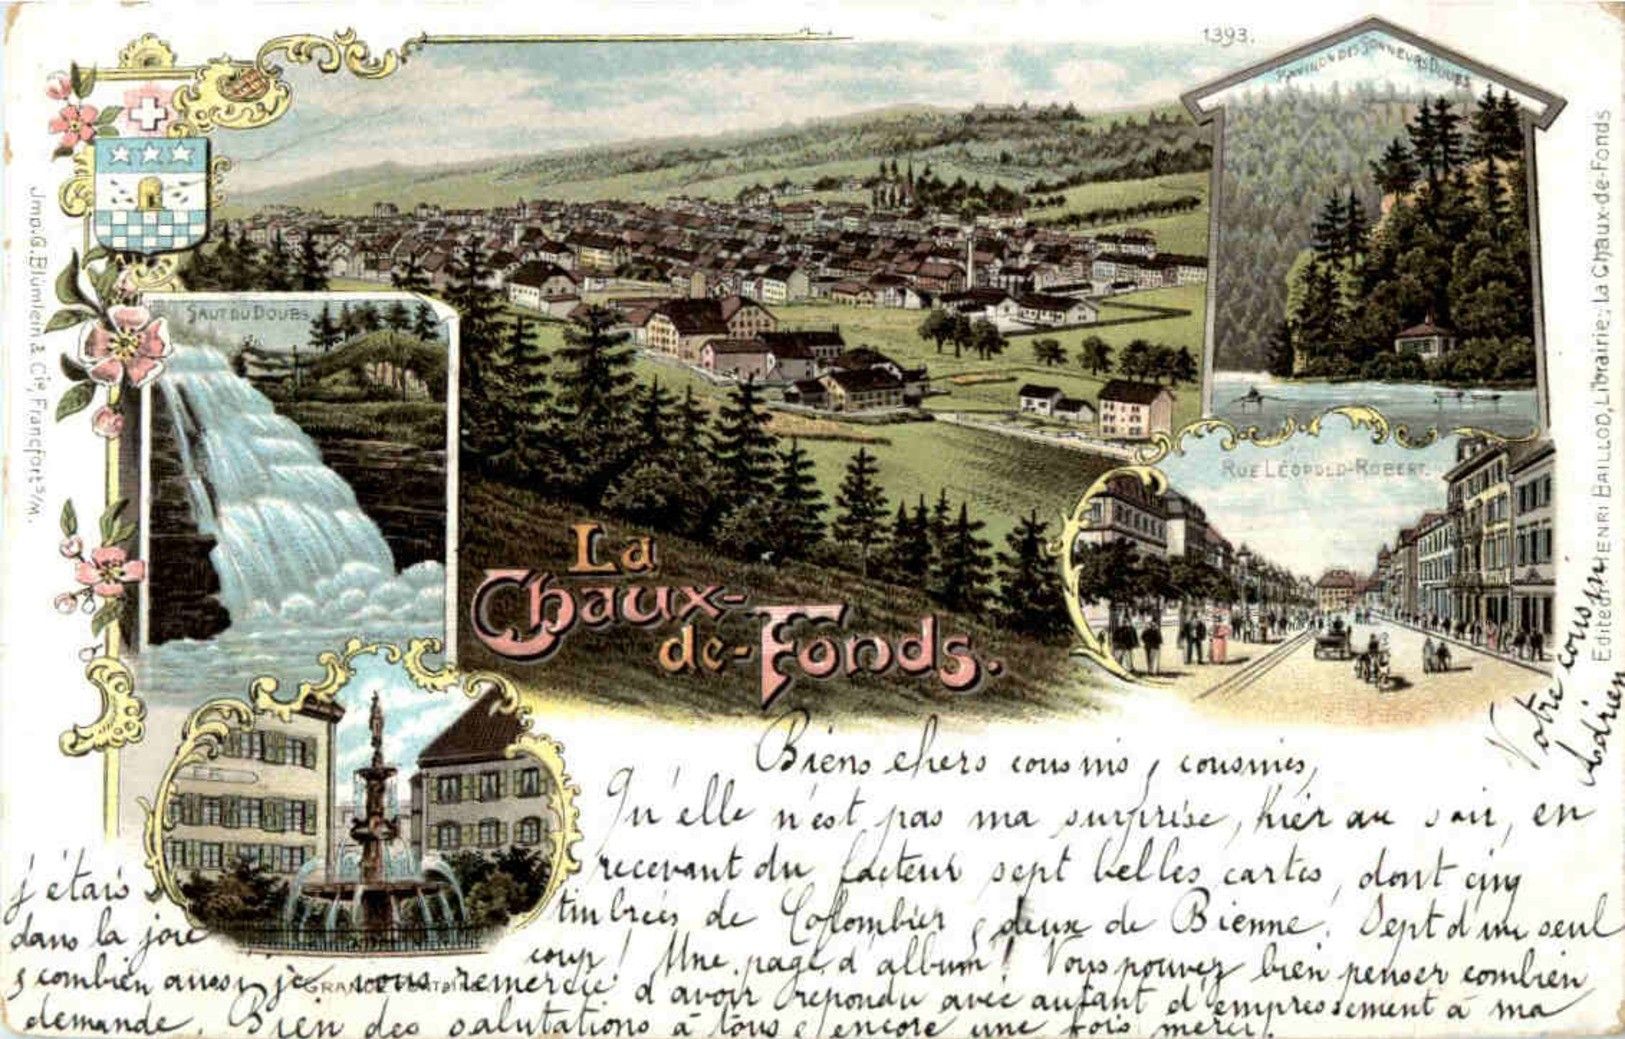 1393.
PAVILLON DES SONNEURS DOUBS
SAUT DU DOUBS
RUE LÉOPOLD-ROBERT.
La
Chaux-
de-Fonds.
GRANDE FONTAINE
Jmp. G. Blümlein & Cie, Francfort s/M.
Edited. HENRI BAILLOD, Librairie, La Chaux-de-Fonds
Biens chers cousins, cousines,
Qu'elle n'est pas ma surprise, hier au soir, en
recevant du facteur sept belles cartes, dont cinq
timbrées de Colombier & deux de Bienne! Sept d'un seul
coup! Une page d'album! Vous pouvez bien penser combien
j'étais
dans la joie
& combien aussi je vous remercie d'avoir repondu avec autant d'empressement à ma
demande. Bien des salutations à tous & encore une fois merci.
Votre cousin
Adrien